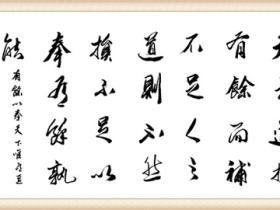 天之道損
有餘而補
不足人之
道則不然
損不足以
奉有餘孰
能
有餘以奉天下唯有道